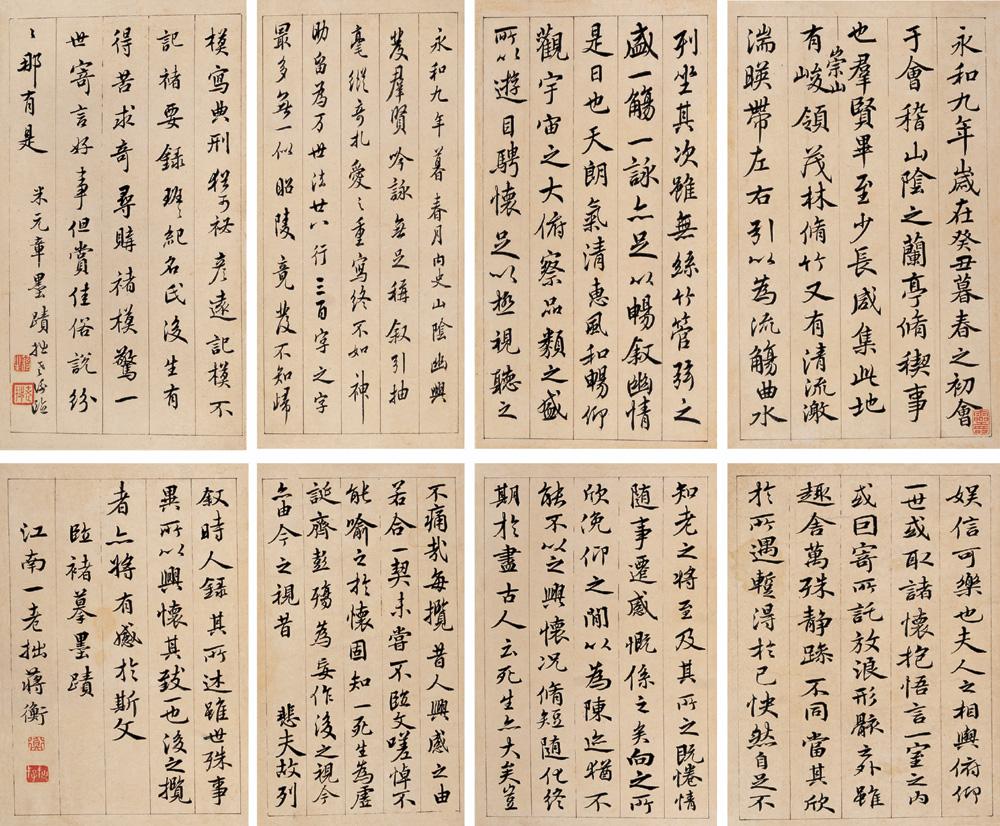 永和九年歲在癸丑暮春之初會
于會稽山陰之蘭亭脩稧事
也羣賢畢至少長咸集此地
有崇山峻領茂林脩竹又有清流激
湍暎帶左右引以為流觴曲水
列坐其次雖無絲竹管弦之
盛一觴一詠亦足以暢叙幽情
是日也天朗氣清惠風和暢仰
觀宇宙之大俯察品類之盛
所以遊目騁懷足以極視聽之
娛信可樂也夫人之相與俯仰
一世或取諸懷抱悟言一室之內
或因寄所託放浪形骸之外雖
趣舍萬殊静躁不同當其欣
於所遇暫得於己怏然自足不
知老之將至及其所之既惓情
隨事遷感慨係之矣向之所
欣俛仰之間以為陳迹猶不
能不以之興懷况脩短隨化終
期於盡古人云死生亦大矣豈
不痛哉每攬昔人興感之由
若合一契未嘗不臨文嗟悼不
能喻之於懷固知一死生為虛
誕齊彭殤為妄作後之視今
亦由今之視昔　悲夫故列
叙時人錄其所述雖世殊事
異所以興懷其致一也後之攬
者亦將有感於斯文
臨褚摹墨蹟
江南一老拙蔣衡
永和九年暮春月内史山陰幽興
發羣賢吟詠無足稱叙引抽
毫縱奇札愛之重寫終不如神
助留為万世法廿八行三百字之字
最多無一似昭陵竟發不知歸
模寫典刑猶可祕彥遠記模不
記褚要錄班〻紀名氏後生有
得苦求奇尋購褚模驚一
世寄言好事但賞佳俗說紛
〻那有是　米元章墨蹟　拙老衡臨